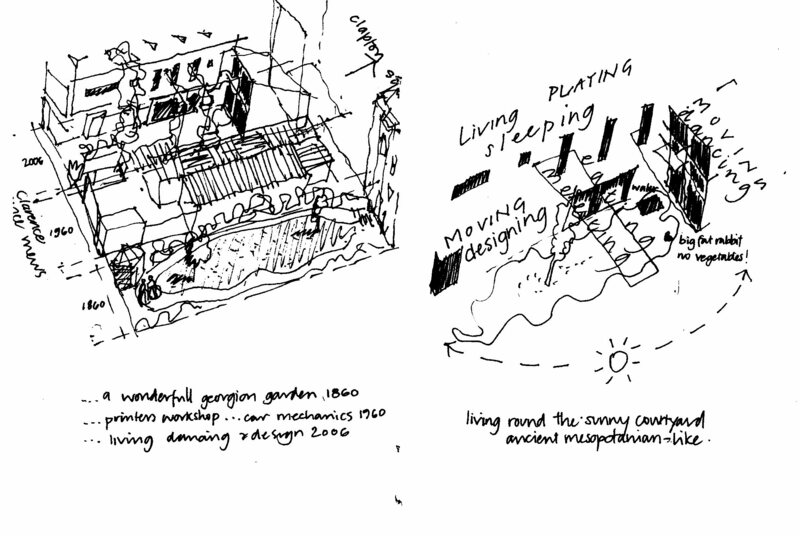 clapton
2006
1960
1860
clarence
mews
... a wonderfull georgian garden 1860
... printers workshop ... car mechanics 1960
... living dancing & design 2006
Living
PLAYING
sleeping
MOVING
designing
water
big fat rabbit
no vegetables!
living round the sunny courtyard
ancient mesopotamian-like.